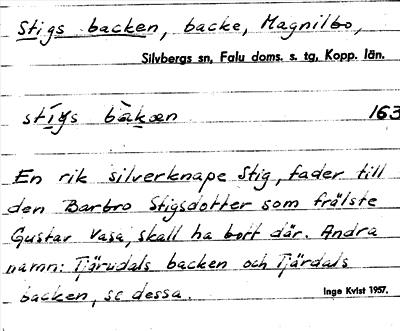 Stigs backen, backe, Magnilbo,
Silvbergs sn, Falu doms. s. tg, Kopp. län.
stígs bàkæn 163
En rik silverknape Stig, fader till
den Barbro Stigsdotter som frälste
Gustav Vasa, skall ha bott där. Andra
namn: Tjärudals backen och Tjärdals
backen, se dessa.
Inge Kvist 1957.